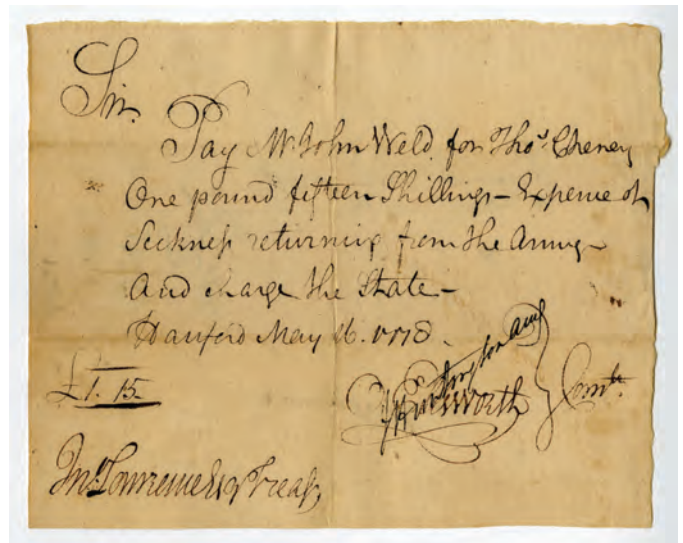 Sir.
Pay Mr. John Weld for Thos. Cheney
One pound fifteen Shillings – Expence of
Sickness returning from the Army –
And charge the State –
Hartford May 16. 1778.
£1. 15
Huntington
Ellsworth } Comtee.
Jno. Lawrence Esqr Treasr